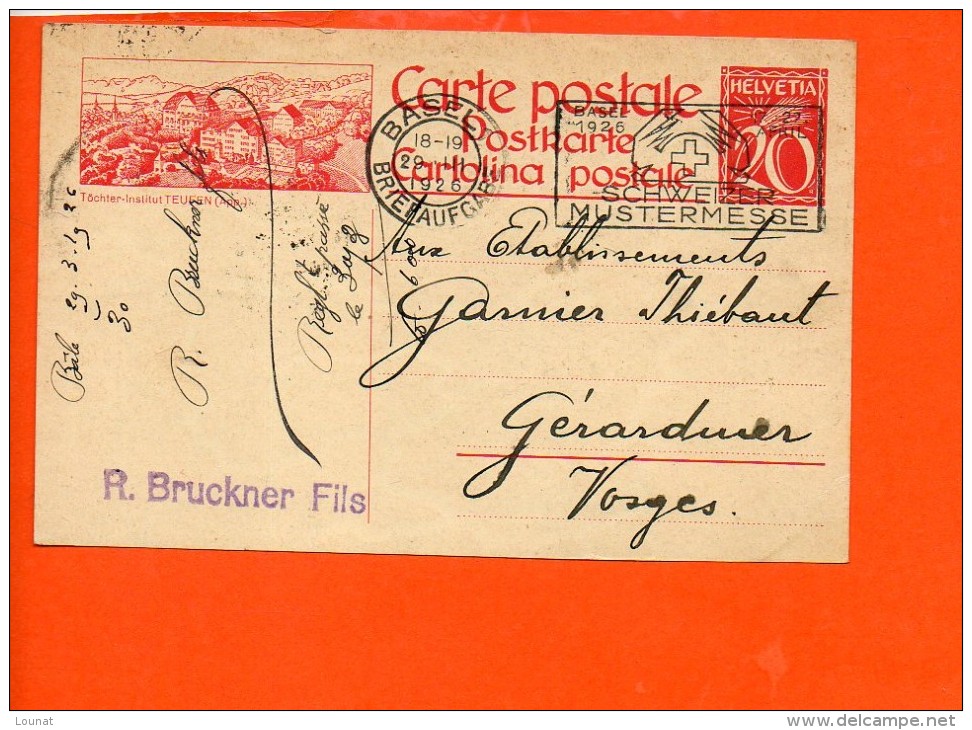 Carte postale
Postkarte
Cartolina postale
HELVETIA
20
BASEL
18-19
29. III
1926
BRIEFAUFGABE
BASEL
1926
APRIL
SCHWEIZER
MUSTERMESSE
Töchter-Institut TEUFEN (App.)
Aux Etablissements
Garnier Thiébaut
Gérardmer
Vosges.
Bâle 29.3.1926
R. Bruckner fils
30
R. Bruckner Fils
Lounat
www.delcampe.net